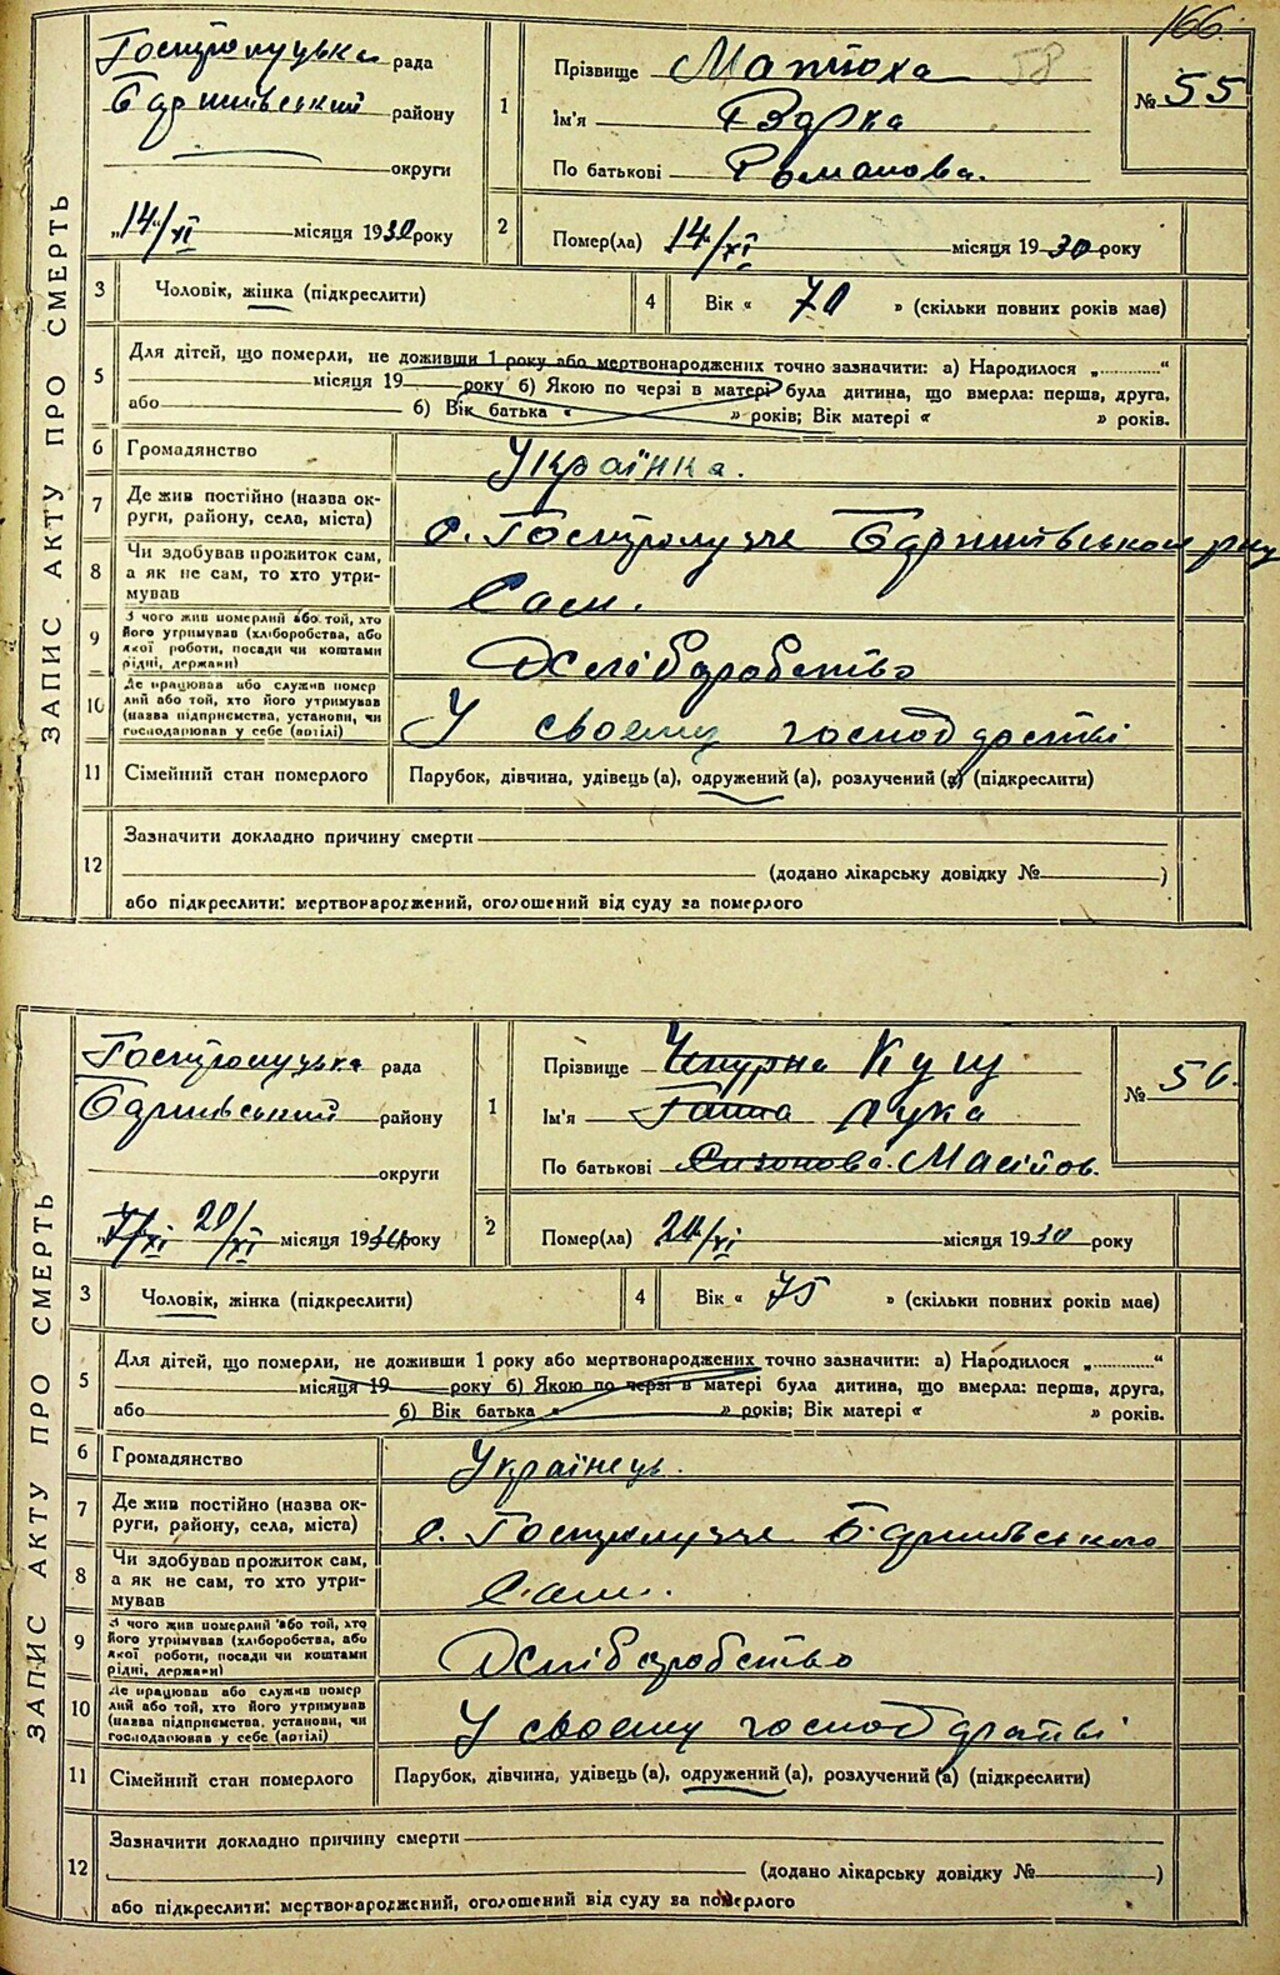 166.
58
ЗАПИС АКТУ ПРО СМЕРТЬ
Гостролуцька рада
Баришівський району
округи
„14“/XI місяця 1930 року
1
Прізвище Матюха
Ім'я
По батькові Романова.
№ 55
2
Помер(ла) 14/XI місяця 1930 року
3 Чоловік, жінка (підкреслити)
4 Вік « 70 » (скільки повних років має)
5
Для дітей, що померли, не доживши 1 року або мертвонароджених точно зазначити: а) Народилося „............“
місяця 19 року б) Якою по черзі в матері була дитина, що вмерла: перша, друга,
або б) Вік батька « » років; Вік матері « » років.
6 Громадянство Українка.
7
Де жив постійно (назва ок-
руги, району, села, міста)
с. Гостролуччя Баришівського р-ну
8
Чи здобував прожиток сам,
а як не сам, то хто утри-
мував
Сам.
9
З чого жив померлий або той, хто
його утримував (хліборобства, або
якої роботи, посади чи коштами
рідні, держави)
Хліборобство
10
Де працював або служив помер
лий або той, хто його утримував
(назва підприємства, установи, чи
господарював у себе (артілі)
У своєму господарстві
11 Сімейний стан померлого Парубок, дівчина, удівець (а), одружений (а), розлучений (а) (підкреслити)
12
Зазначити докладно причину смерти
(додано лікарську довідку № )
або підкреслити: мертвонароджений, оголошений від суду за померлого
ЗАПИС АКТУ ПРО СМЕРТЬ
Гостролуцька рада
Баришівський району
округи
20/XI місяця 1930 року
1
Прізвище Чепурна Кущ
Ім'я Ганна Лука
По батькові Сизонова. Масійов.
№ 56.
2
Помер(ла) 20/XI місяця 1930 року
3 Чоловік, жінка (підкреслити)
4 Вік « 75 » (скільки повних років має)
5
Для дітей, що померли, не доживши 1 року або мертвонароджених точно зазначити: а) Народилося „............“
місяця 19 року б) Якою по черзі в матері була дитина, що вмерла: перша, друга,
або б) Вік батька « » років; Вік матері « » років.
6 Громадянство Українець.
7
Де жив постійно (назва ок-
руги, району, села, міста)
с. Гостролуччя Баришівського
8
Чи здобував прожиток сам,
а як не сам, то хто утри-
мував
Сам.
9
З чого жив померлий або той, хто
його утримував (хліборобства, або
якої роботи, посади чи коштами
рідні, держави)
Хліборобство
10
Де працював або служив помер
лий або той, хто його утримував
(назва підприємства, установи, чи
господарював у себе (артілі)
У своєму господарстві
11 Сімейний стан померлого Парубок, дівчина, удівець (а), одружений (а), розлучений (а) (підкреслити)
12
Зазначити докладно причину смерти
(додано лікарську довідку № )
або підкреслити: мертвонароджений, оголошений від суду за померлого